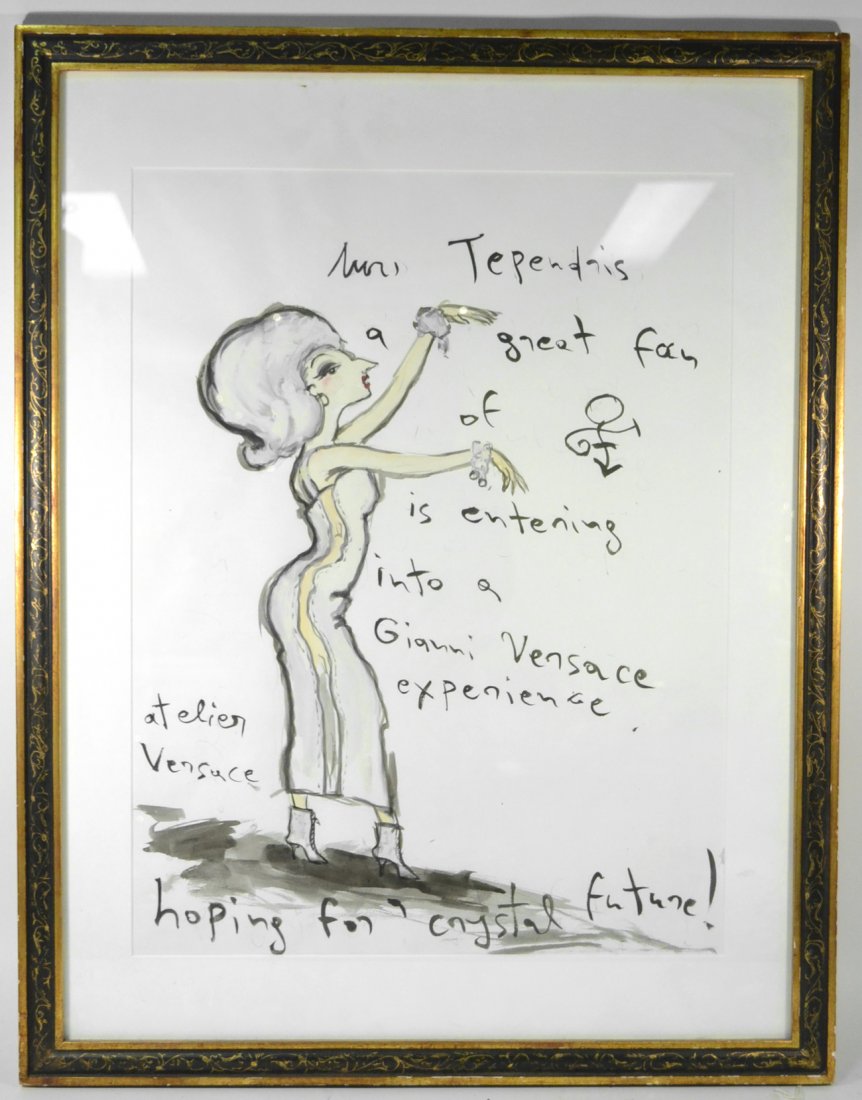 Mrs Tependris
a great fan
of
is entering
into a
Gianni Versace
experience.
atelier
Versace
hoping for a crystal future!